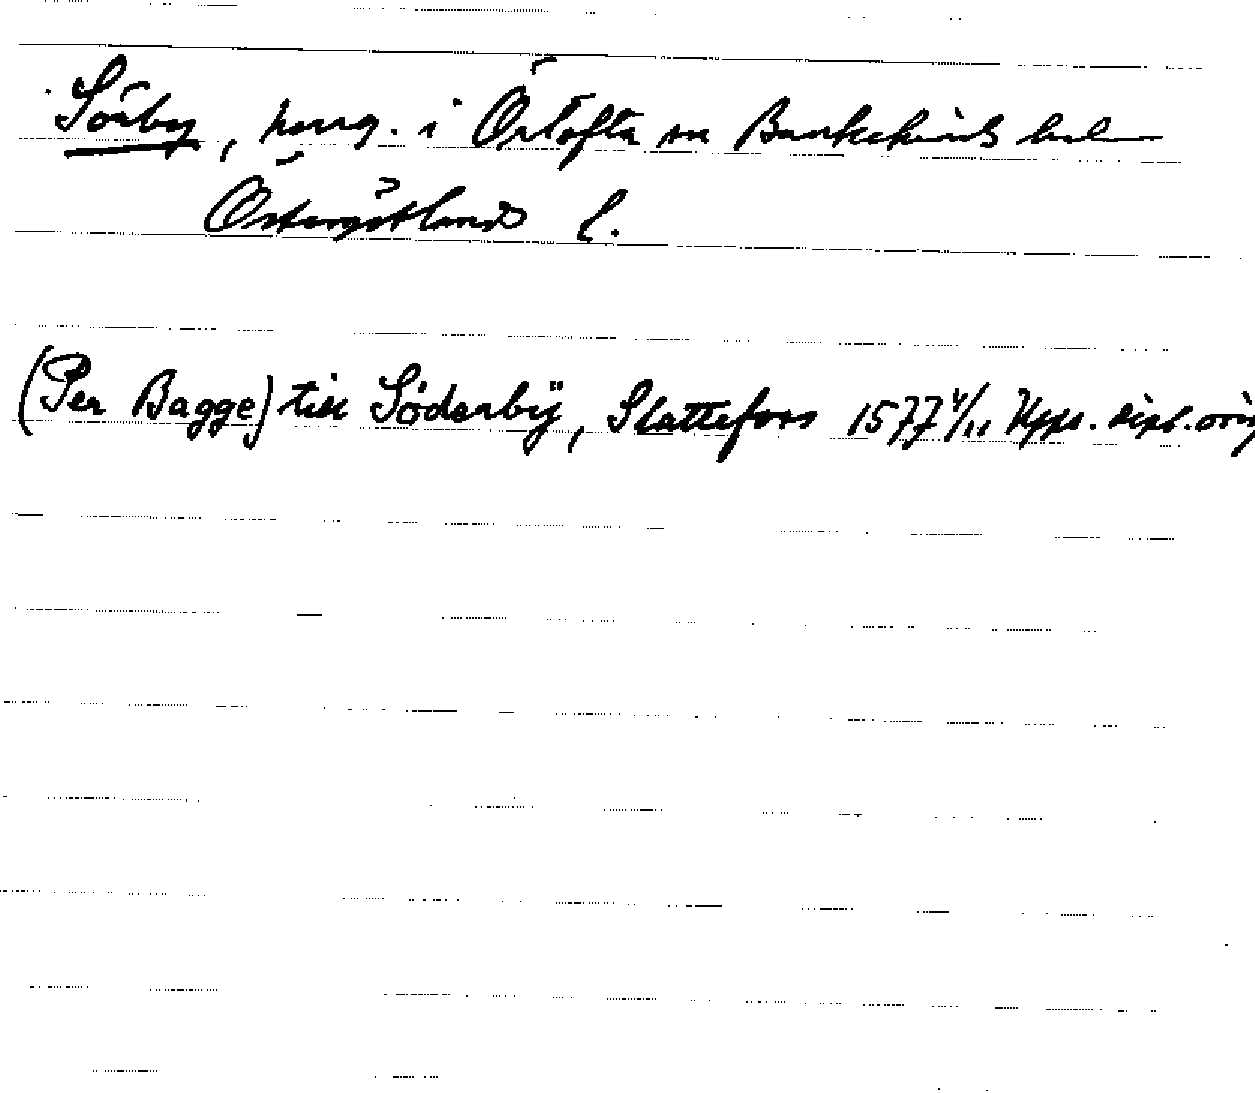 Sörby, herrg. i Örtofta sn Bankekinds hd
Östergötlands l.
(Per Bagge) till Söderbÿ, Slattefors 1577 4/11 Upps. dipl. orig